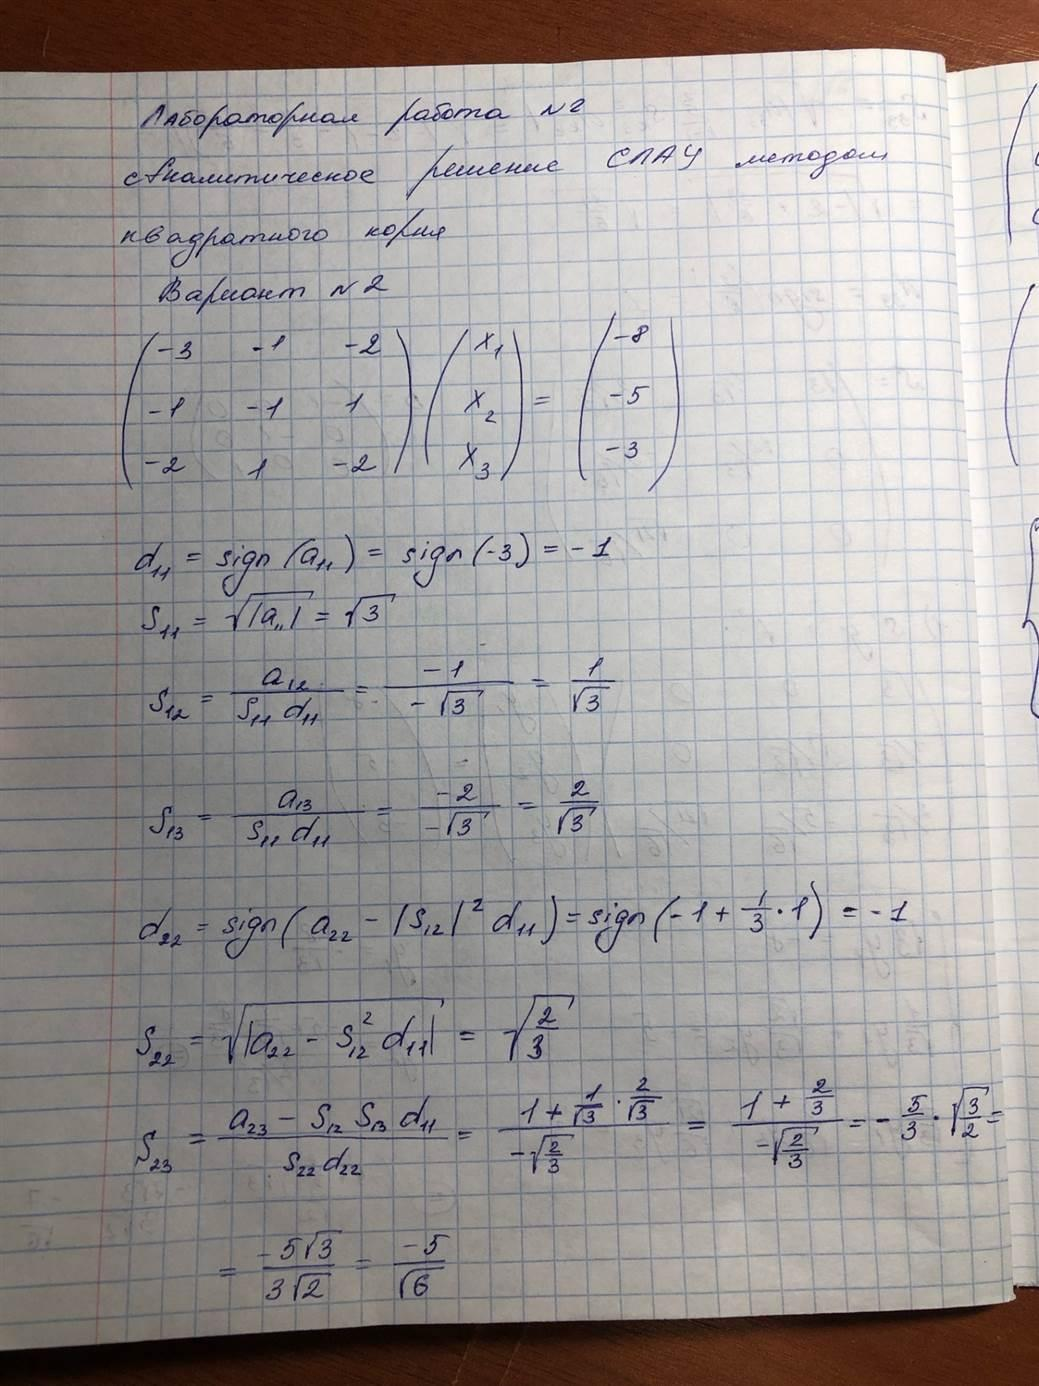 Лабораторная работа №2
Аналитическое решение СЛАУ методом
квадратного корня
Вариант №2
(-3 -1 -2) (x₁) (-8)
(-1 -1 1) (x₂) = (-5)
(-2 1 -2) (x₃) (-3)
d₁₁ = sign(a₁₁) = sign(-3) = -1
S₁₁ = √|a₁₁| = √3
S₁₂ = a₁₂ / (S₁₁ d₁₁) = -1 / (-√3) = 1/√3
S₁₃ = a₁₃ / (S₁₁ d₁₁) = -2 / (-√3) = 2/√3
d₂₂ = sign(a₂₂ - |S₁₂|² d₁₁) = sign(-1 + 1/3 · 1) = -1
S₂₂ = √|a₂₂ - S₁₂² d₁₁| = √(2/3)
S₂₃ = (a₂₃ - S₁₂ S₁₃ d₁₁) / (S₂₂ d₂₂) = (1 + 1/√3 · 2/√3) / (-√(2/3)) = (1 + 2/3) / (-√(2/3)) = -5/3 · √(3/2) =
= -5√3 / (3√2) = -5/√6